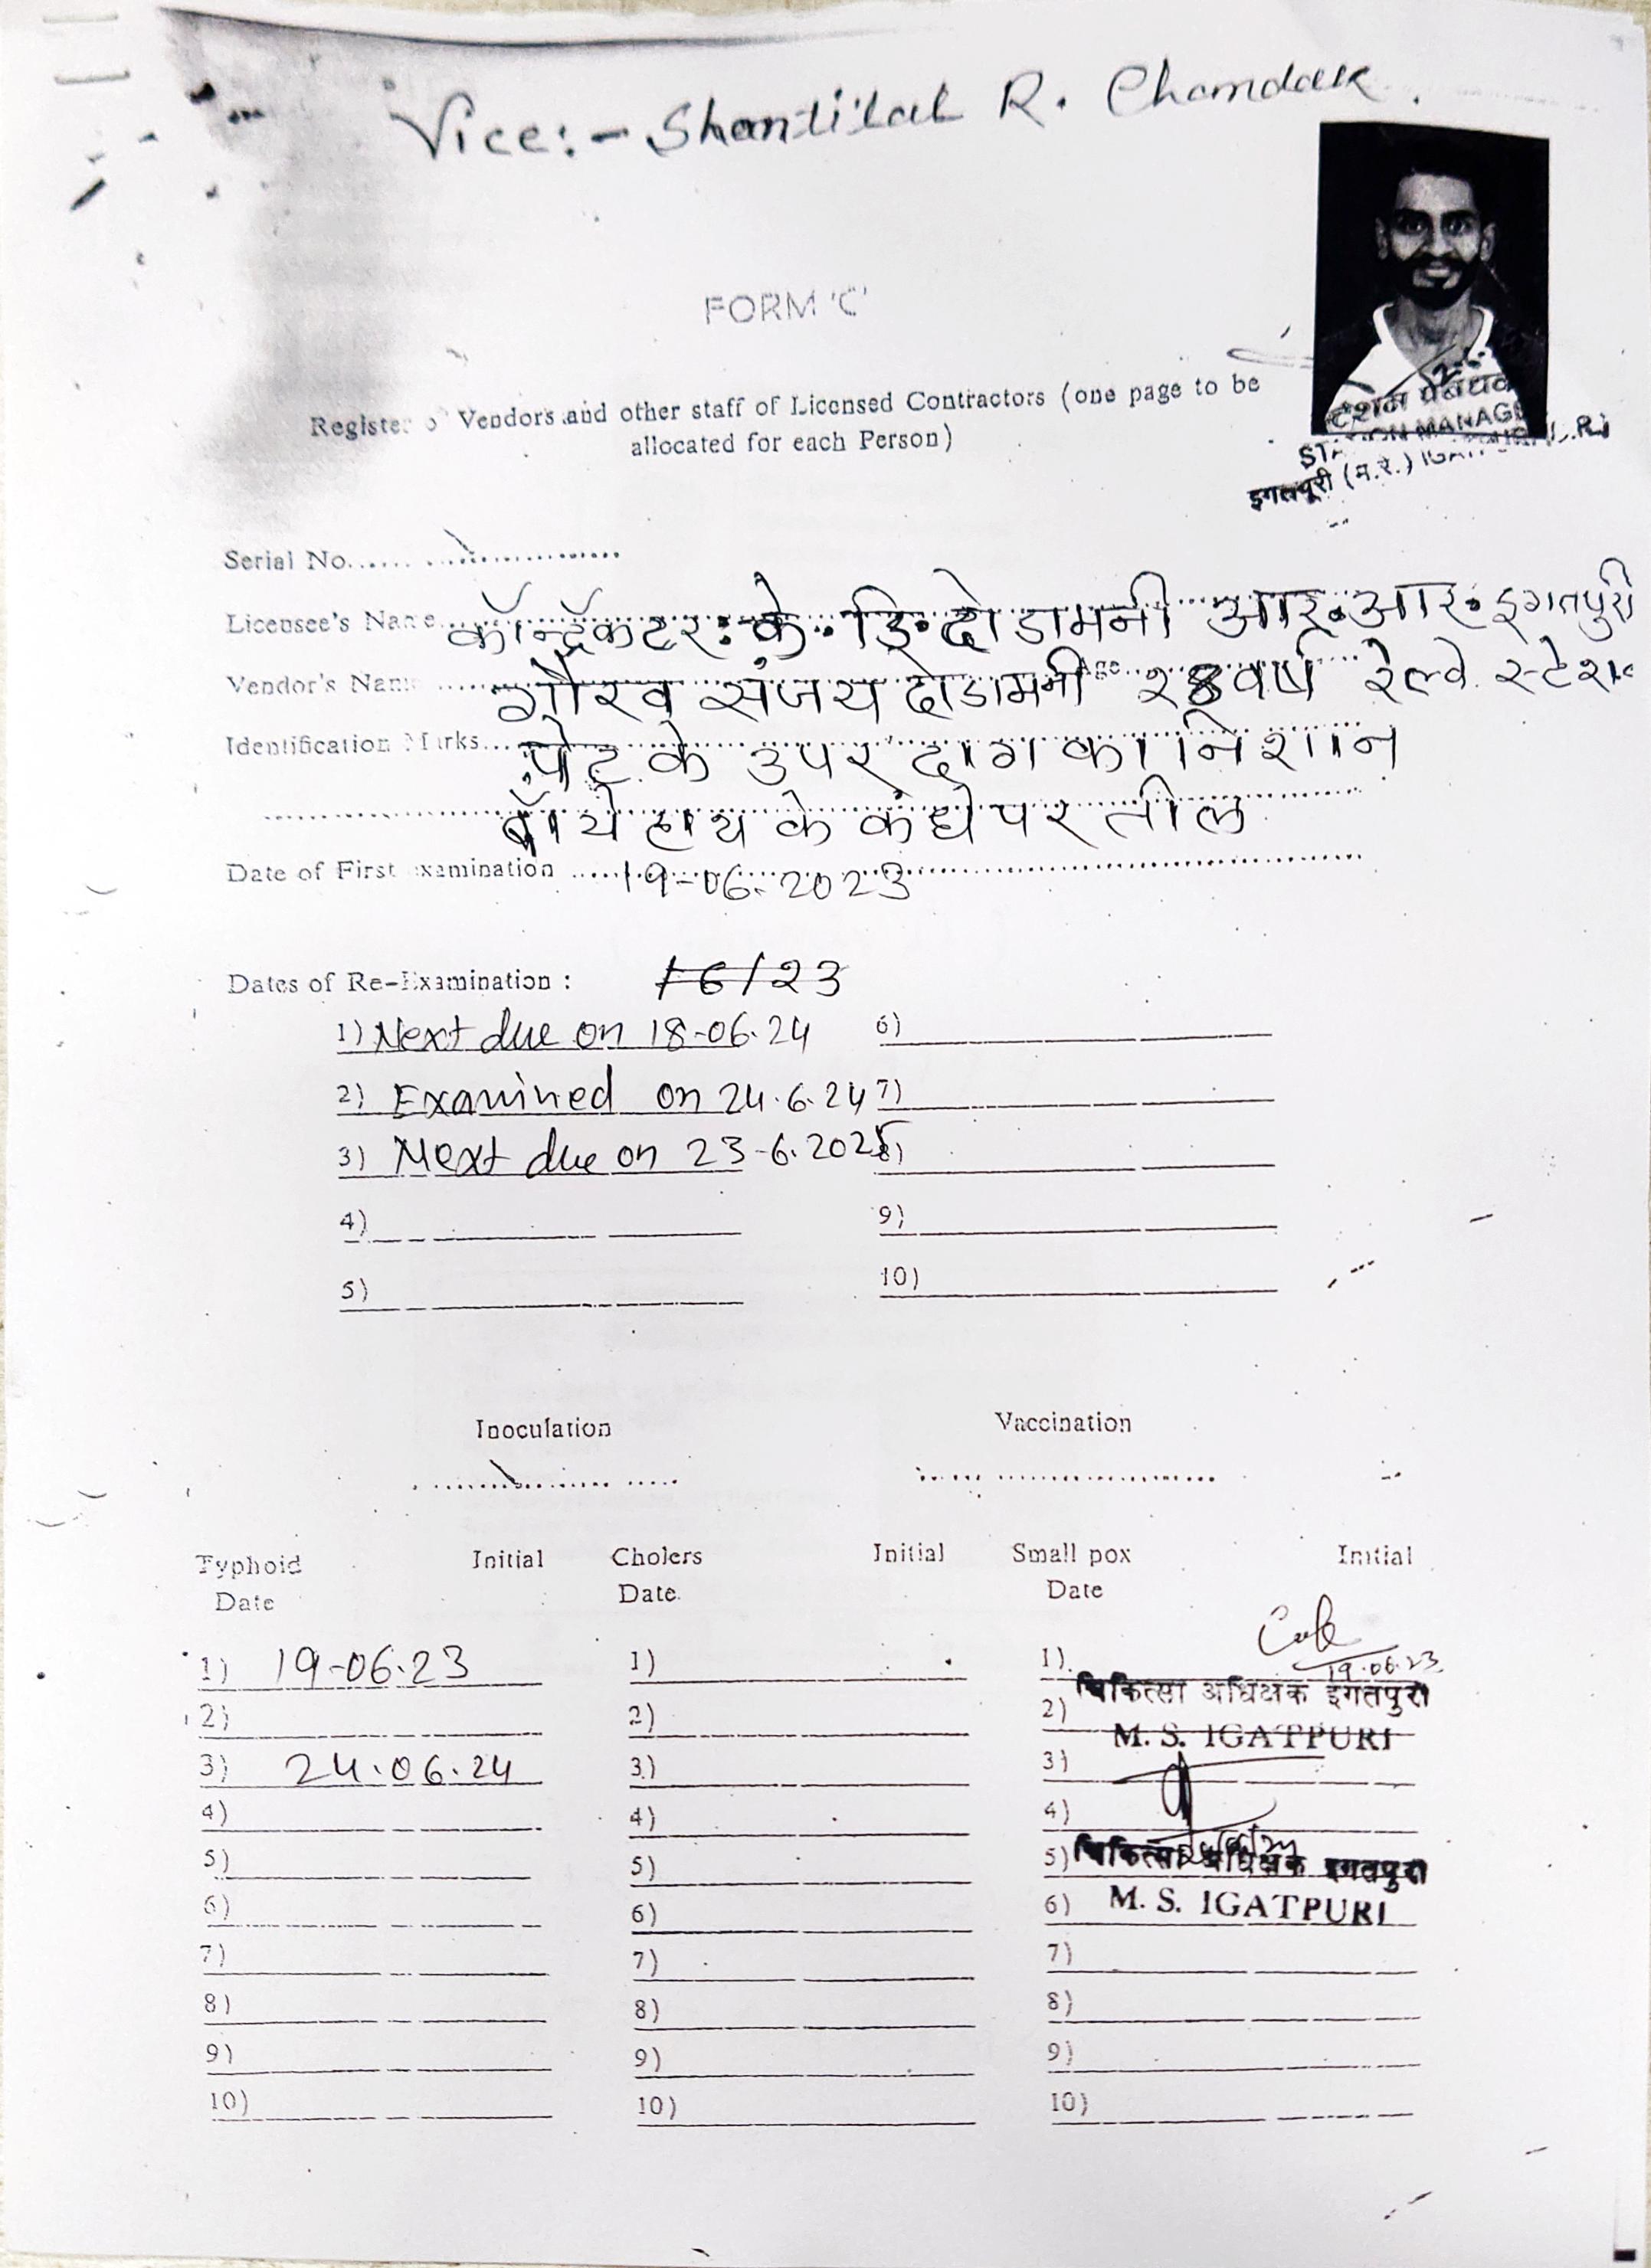 Vice:- Shantilal R. Chandak.
FORM 'C'
Register of Vendors and other staff of Licensed Contractors (one page to be
allocated for each Person)
STATION MANAGE
इगतपूरी (म.रे.)
Serial No.
Licensee's Name कॉन्ट्रॅकटर: के. डि. दोडामनी आर. आर. इगतपुरी
Vendor's Name गौरव संजय दोडामनी Age 28 वर्ष रेल्वे स्टेशन
Identification Marks पोट के उपर दाग का निशान
बॉये हाथ के कंधे पर तील
Date of First Examination 19-06-2023
Dates of Re-Examination : /6/23
1) Next due on 18-06-24 6)
2) Examined on 24.6.24 7)
3) Next due on 23-6.2025 8)
4) 9)
5) 10)
Inoculation Vaccination
Typhoid Initial Cholers Initial Small pox Initial
Date Date. Date
1) 19-06.23 1) 1) 19.06.23
चिकित्सा अधिक्षक इगतपुरी
2) 2) 2) M. S. IGATPURI
3) 24.06.24 3) 3)
4) 4) 4)
5) 5) 5) चिकित्सा अधिक्षक इगतपुरी
6) 6) 6) M. S. IGATPURI
7) 7) 7)
8) 8) 8)
9) 9) 9)
10) 10) 10)